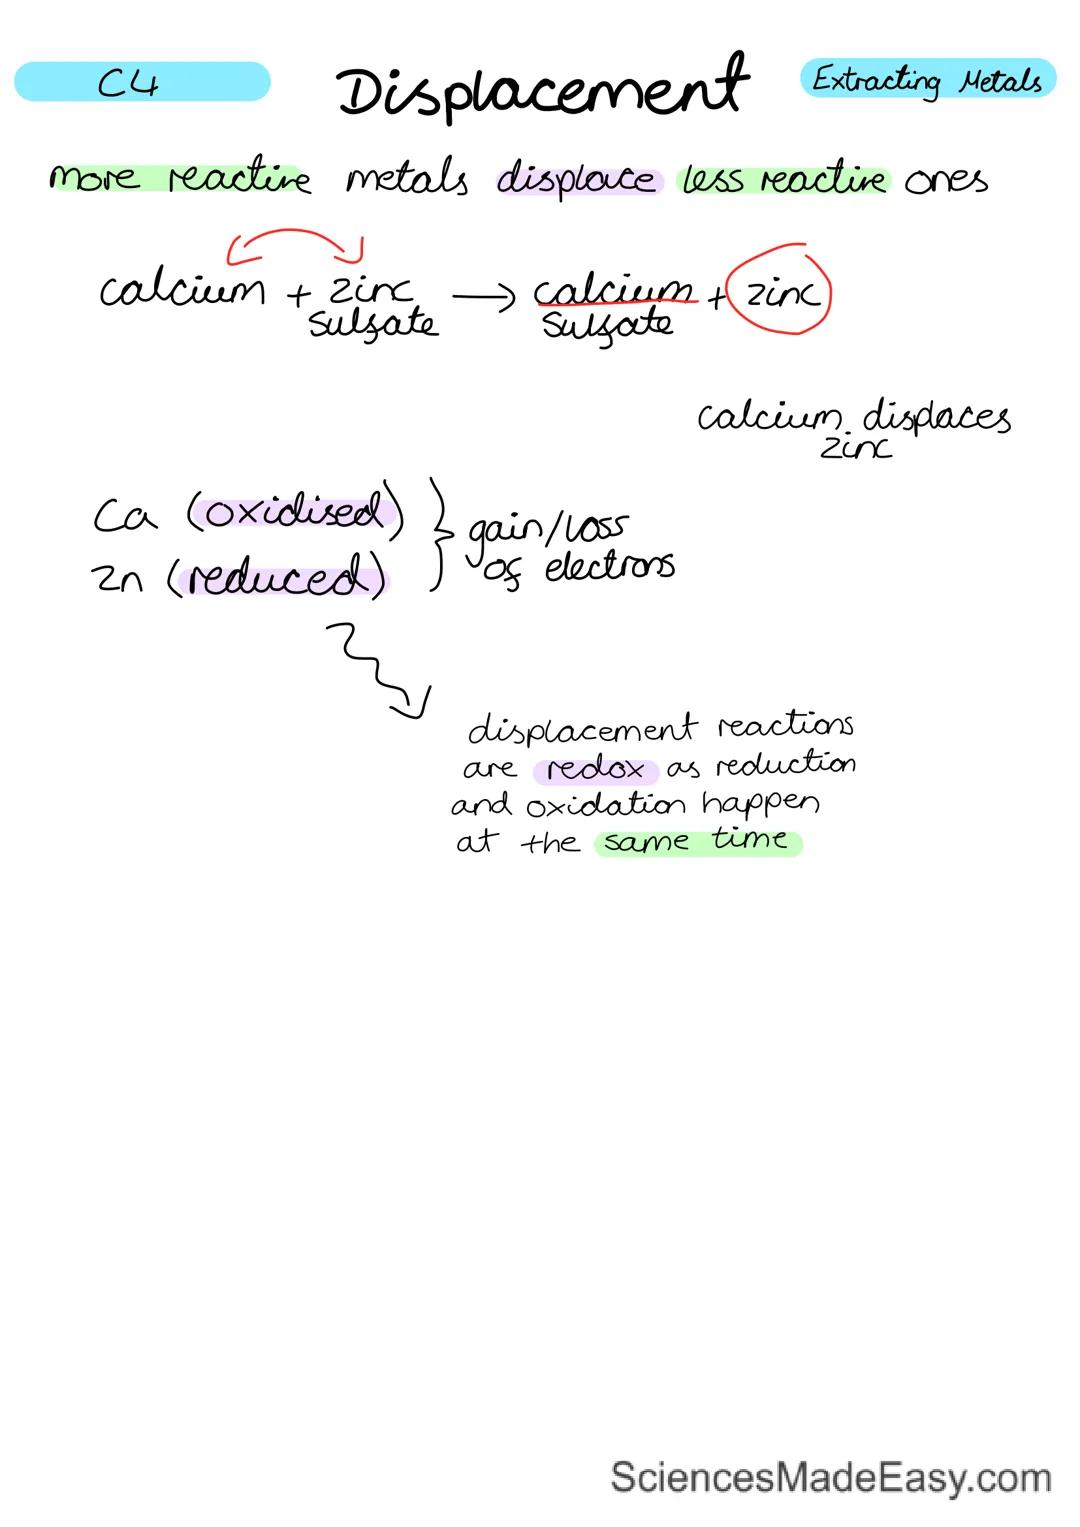 C4
Displacement
Extracting Metals
more reactive metals displace less reactive ones
calcium + zinc sulfate → calcium sulfate + zinc
calcium displaces
zinc
Ca (oxidised)
Zn (reduced)
gain/loss
of electrons
displacement reactions
are redox as reduction
and oxidation happen
at the same time
SciencesMadeEasy.com